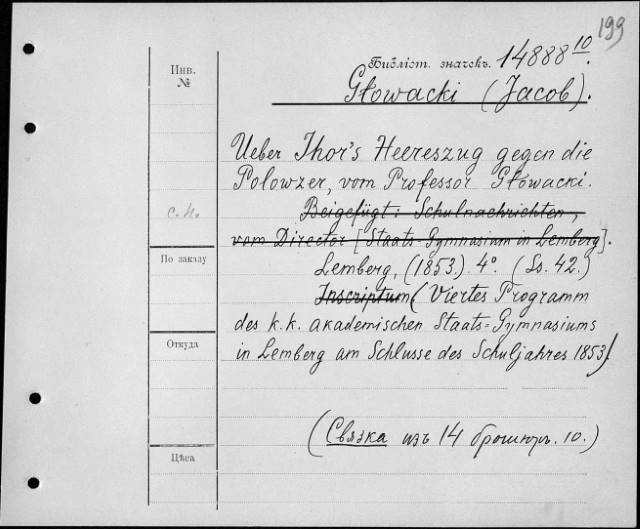 199
Инв.
№
Библіот. значекъ. 14888 10.
Głowacki (Jacob).
Ueber Ihor's Heereszug gegen die
Polowzer, vom Professor Głowacki.
с.н.
Beigefügt: Schulnachrichten,
vom Director [Staats=Gymnasium in Lemberg].
По заказу
Lemberg, (1853.) 4°. (Ss. 42.)
Inscriptum (Viertes Programm
des k.k. akademischen Staats=Gymnasiums
Откуда
in Lemberg am Schlusse des Schuljahres 1853)
(Связка изъ 14 брошюръ. 10.)
Цѣна